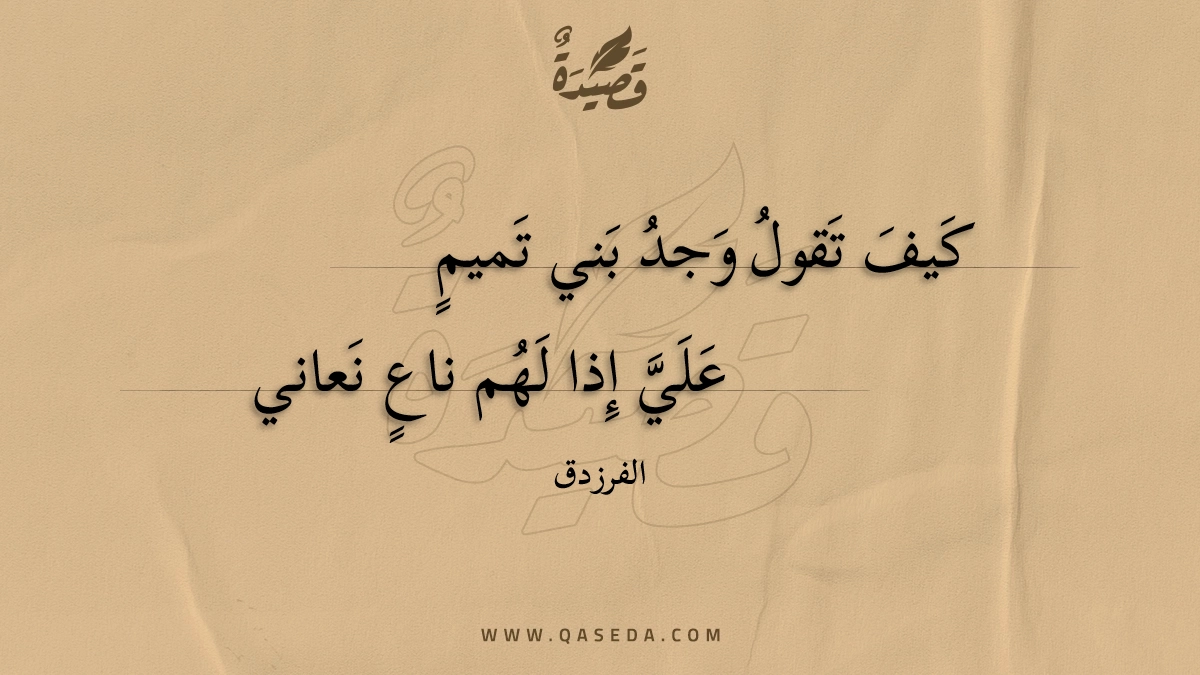 قَصِيدَةٌ
كَيفَ تَقولُ وَجدُ بَني تَميمٍ
عَلَيَّ إِذا لَهُم ناعٍ نَعاني
الفرزدق
WWW.QASEDA.COM